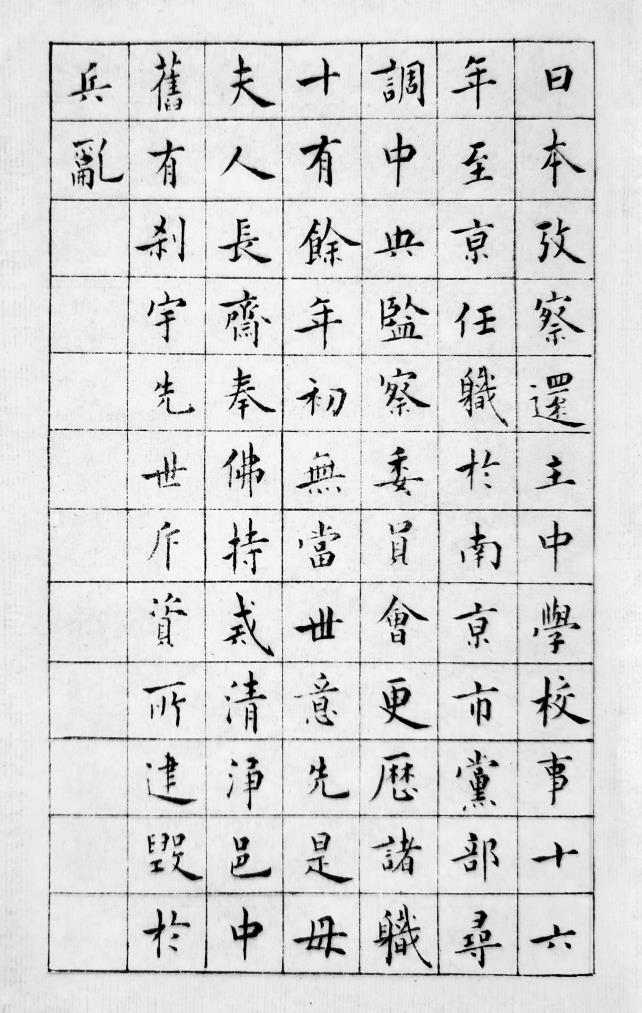 日本攷察還主中學校事十六
年至京任職於南京市黨部尋
調中央監察委員會更歷諸職
十有餘年初無當世意先是毋
夫人長齋奉佛持戒清淨邑中
舊有刹宇先世斥資所建毀於
兵亂